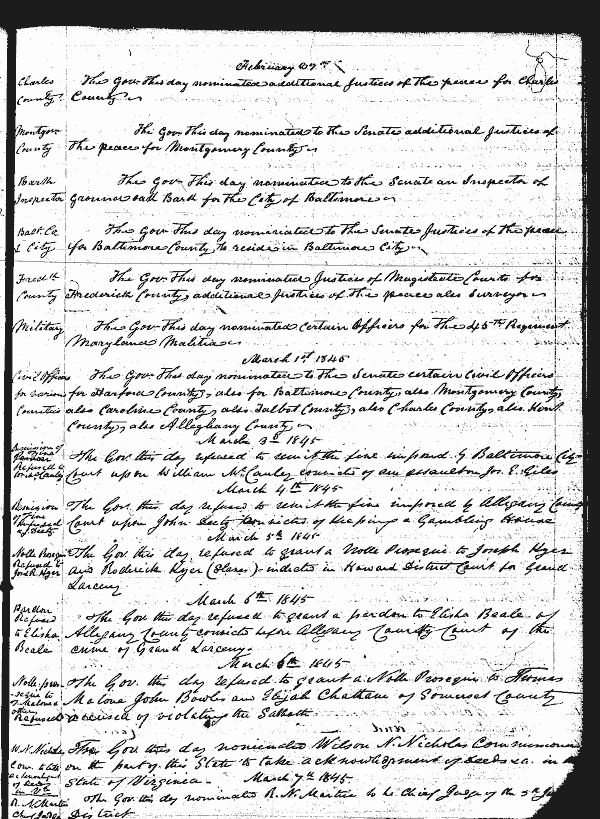 February 27th
Charles
County
The Gov. This day nominated additional Justices of the peace for Charles
County
Montgom
County
The Gov. This day nominated to the Senate additional Justices of
the peace for Montgomery County
Bark
Inspector
The Gov. This day nominated to the Senate an Inspector of
ground oak Bark for the City of Baltimore
Balt. Co
& City
The Gov. This day nominated to the Senate Justices of the peace
for Baltimore County, to reside in Baltimore City
Fredk
County
The Gov. This day nominated Justices of Magistrate Courts for
Frederick County, additional Justices of the peace also Surveyor
Military
The Gov. This day nominated certain Officers for the 45th Regiment
Maryland Malitia
March 1st 1845
Civil Officers
for various
Counties
The Gov. This day nominated to the Senate certain Civil Officers
for Harford County, also for Baltimore County, also Montgomery County
also Caroline County, also Talbot County, also Charles County, also Kent
County, also Alleghany County
March 3d 1845
Remission of
Fine
Refused to
Wm McCauley
The Gov. this day refused to remit the fine imposed by Baltimore City
Court upon William McCauley convicted of an assault on Jos. E. Giles
March 4th 1845
Remission
of Fine
Refused
The Gov. this day refused to remit the fine imposed by Allegany County
Court upon John convicted of keeping a Gambling House
March 5th 1845
Nolle Prosequi
Refused to
Jos & R. Hyer
The Gov this day refused to grant a Nolle Prosequi to Joseph Hyer
and Roderick Hyer (Slaves) indicted in Howard District Court for Grand
Larceny
March 6th 1845
Pardon
Refused
to Elisha
Beale
The Gov. this day refused to grant a pardon to Elisha Beale of
Allegany County convicted before Allegany County Court of the
crime of Grand Larceny.
March 6th 1845
Nolle pros-
-sequi to
Malone &
others
Refused
The Gov. this day refused to grant a Nolle Prosequi to Thomas
Malone John Bowles and Elijah Chattam of Somerset County
accused of violating the Sabbath
W. N. Nicholas
Com. to take
acknowledgment
of deeds
in Va
The Gov this day nominated Wilson N. Nicholas Commissioner
on the part of this State to take acknowledgment of deeds &a. in the
State of Virginia. March 7th 1845
R. N. Martin
Chief Judge
The Gov. this day nominated R. N. Martin to be Chief Judge of the 5th Ju
District